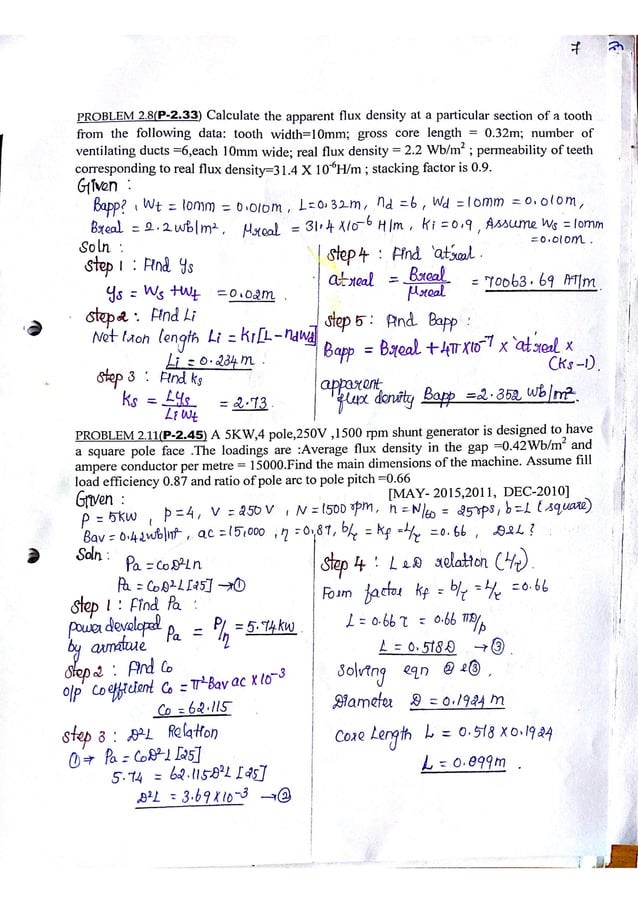 7
PROBLEM 2.8(P-2.33) Calculate the apparent flux density at a particular section of a tooth
from the following data: tooth width=10mm; gross core length = 0.32m; number of
ventilating ducts =6,each 10mm wide; real flux density = 2.2 Wb/m² ; permeability of teeth
corresponding to real flux density=31.4 X 10⁻⁶H/m ; stacking factor is 0.9.
Given :
Bapp? , Wt = 10mm = 0.010m , L=0.32m, nd =6, Wd =10mm = 0.010m,
Breal = 2.2wb/m², μreal = 31.4 x10⁻⁶ H/m, Ki =0.9, Assume Ws =10mm
=0.010m.
Soln :
Step 1 : Find ys
ys = Ws +Wt = 0.02m .
Step 2 : Find Li
Net Iron length Li = Ki[L - ndWd]
Li = 0.234m .
Step 3 : Find ks
Ks = Lys/LiWt = 2.73 .
Step 4 : Find 'at'real .
at real = Breal/μreal = 70063.69 AT/m
Step 5 : Find Bapp :
Bapp = Breal + 4π x10⁻⁷ x 'at'real x
(Ks -1).
apparent
flux density Bapp = 2.352 wb/m².
PROBLEM 2.11(P-2.45) A 5KW,4 pole,250V ,1500 rpm shunt generator is designed to have
a square pole face .The loadings are :Average flux density in the gap =0.42Wb/m² and
ampere conductor per metre = 15000.Find the main dimensions of the machine. Assume fill
load efficiency 0.87 and ratio of pole arc to pole pitch =0.66
[MAY- 2015,2011, DEC-2010]
Given :
P = 5kw , p=4, V = 250V , N=1500 rpm, n = N/60 = 25rps, b=L (square)
Bav = 0.42wb/m², ac =15,000 , η =0.87, b/τ = Kf =L/τ = 0.66 , D&L ?
Soln :
Pa = CoD²Ln
Pa = CoD²L[25] →①
Step 1 : Find Pa :
power developed Pa = P/η = 5.74kw
by armature
Step 2 : Find Co
o/p coefficient Co = π²Bav ac x10⁻³
Co = 62.115
Step 3 : D²L Relation
① ⇒ Pa = CoD²L[25]
5.74 = 62.115D²L[25]
D²L = 3.69 x10⁻³ →②
Step 4 : L & D relation (L/τ)
Form factor Kf = b/τ = L/τ = 0.66
L = 0.66 τ = 0.66 πD/p
L = 0.518D →③
Solving eqn ② & ③ .
Diameter D = 0.1924 m
Core Length L = 0.518 x0.1924
L = 0.099m .